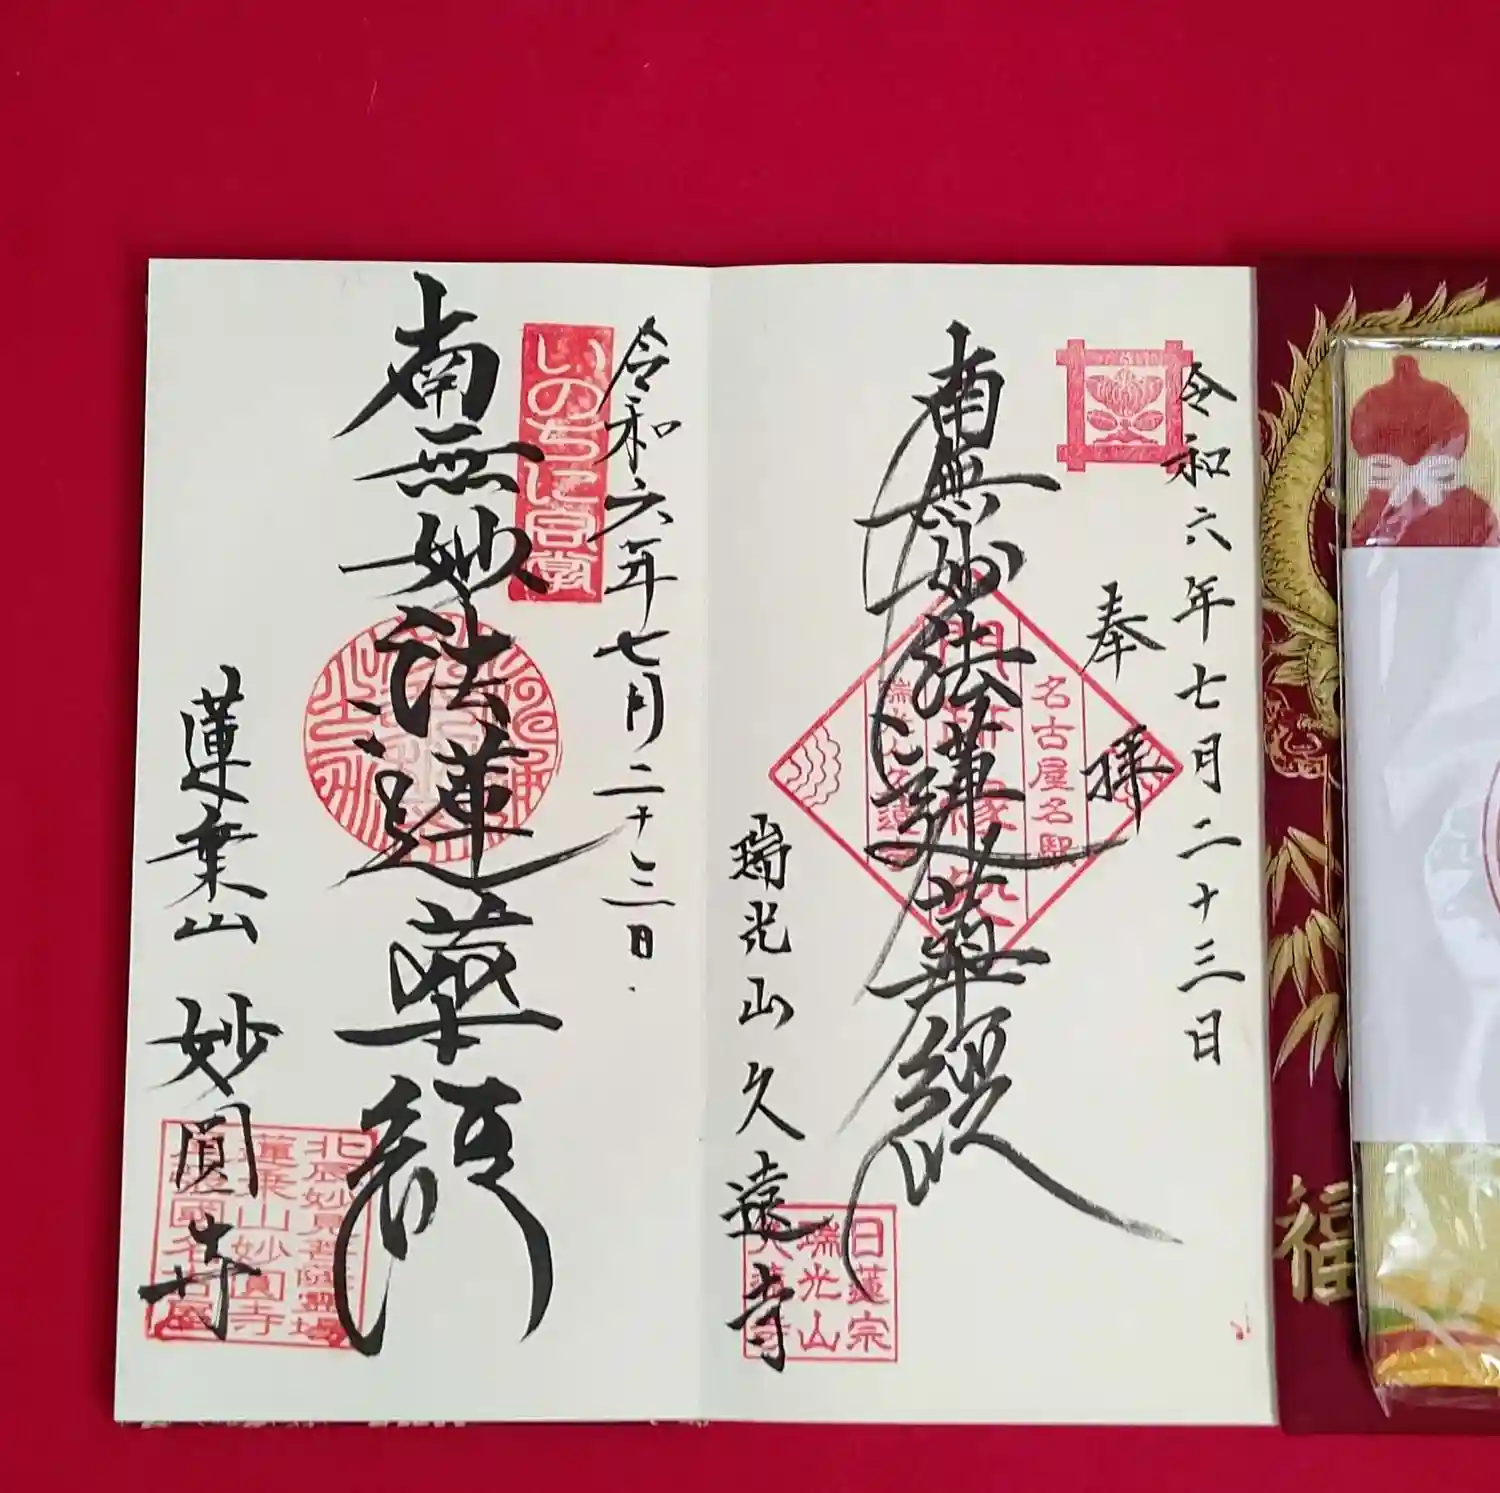 令和六年七月二十三日
奉拝
南無妙法蓮華経
名古屋名駅
瑞光山久遠寺
日蓮宗
瑞光山
久遠寺
令和六年七月二十三日
いのちに合掌
南無妙法蓮華経
蓮乗山妙圓寺
北辰妙見菩薩霊場
蓮乗山妙圓寺
福